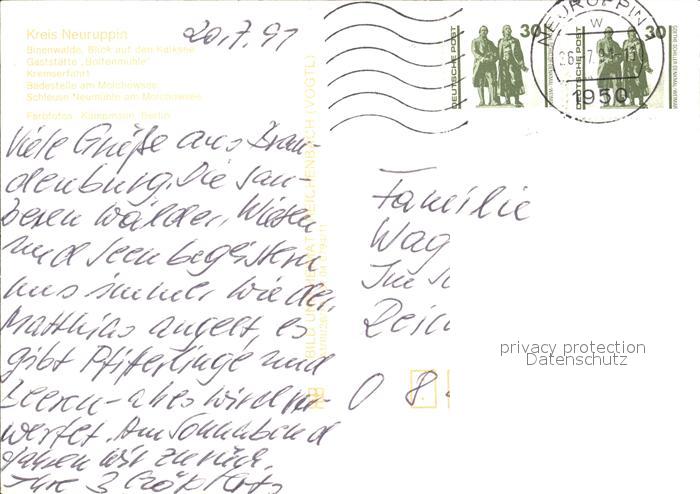 Kreis Neuruppin
Binenwalde, Blick auf den Kalksee
Gaststätte „Boltenmühle“
Kremserfahrt
Badestelle am Molchowsee
Schleuse Neumühle am Molchowsee
Farbfotos: Kämpmann, Berlin
20.7.91
BILD UND HEIMAT REICHENBACH (VOGTL)
DEUTSCHE POST
30
GOETHE-SCHILLER-DENKMAL · WEIMAR
DEUTSCHE POST
30
GOETHE-SCHILLER-DENKMAL · WEIMAR
NEURUPPIN
W
1950
Viele Grüße aus Bran-
denburg. Die sau-
beren Wälder, Wiesen
und Seen begeistern
uns immer wieder.
Matthias angelt, es
gibt Pfifferlinge und
Beeren – alles wird ver-
wertet. Am Sonnabend
fahren wir zurück.
Ihre 3
Familie
Wag
Im
Reic
O 8
privacy protection
Datenschutz